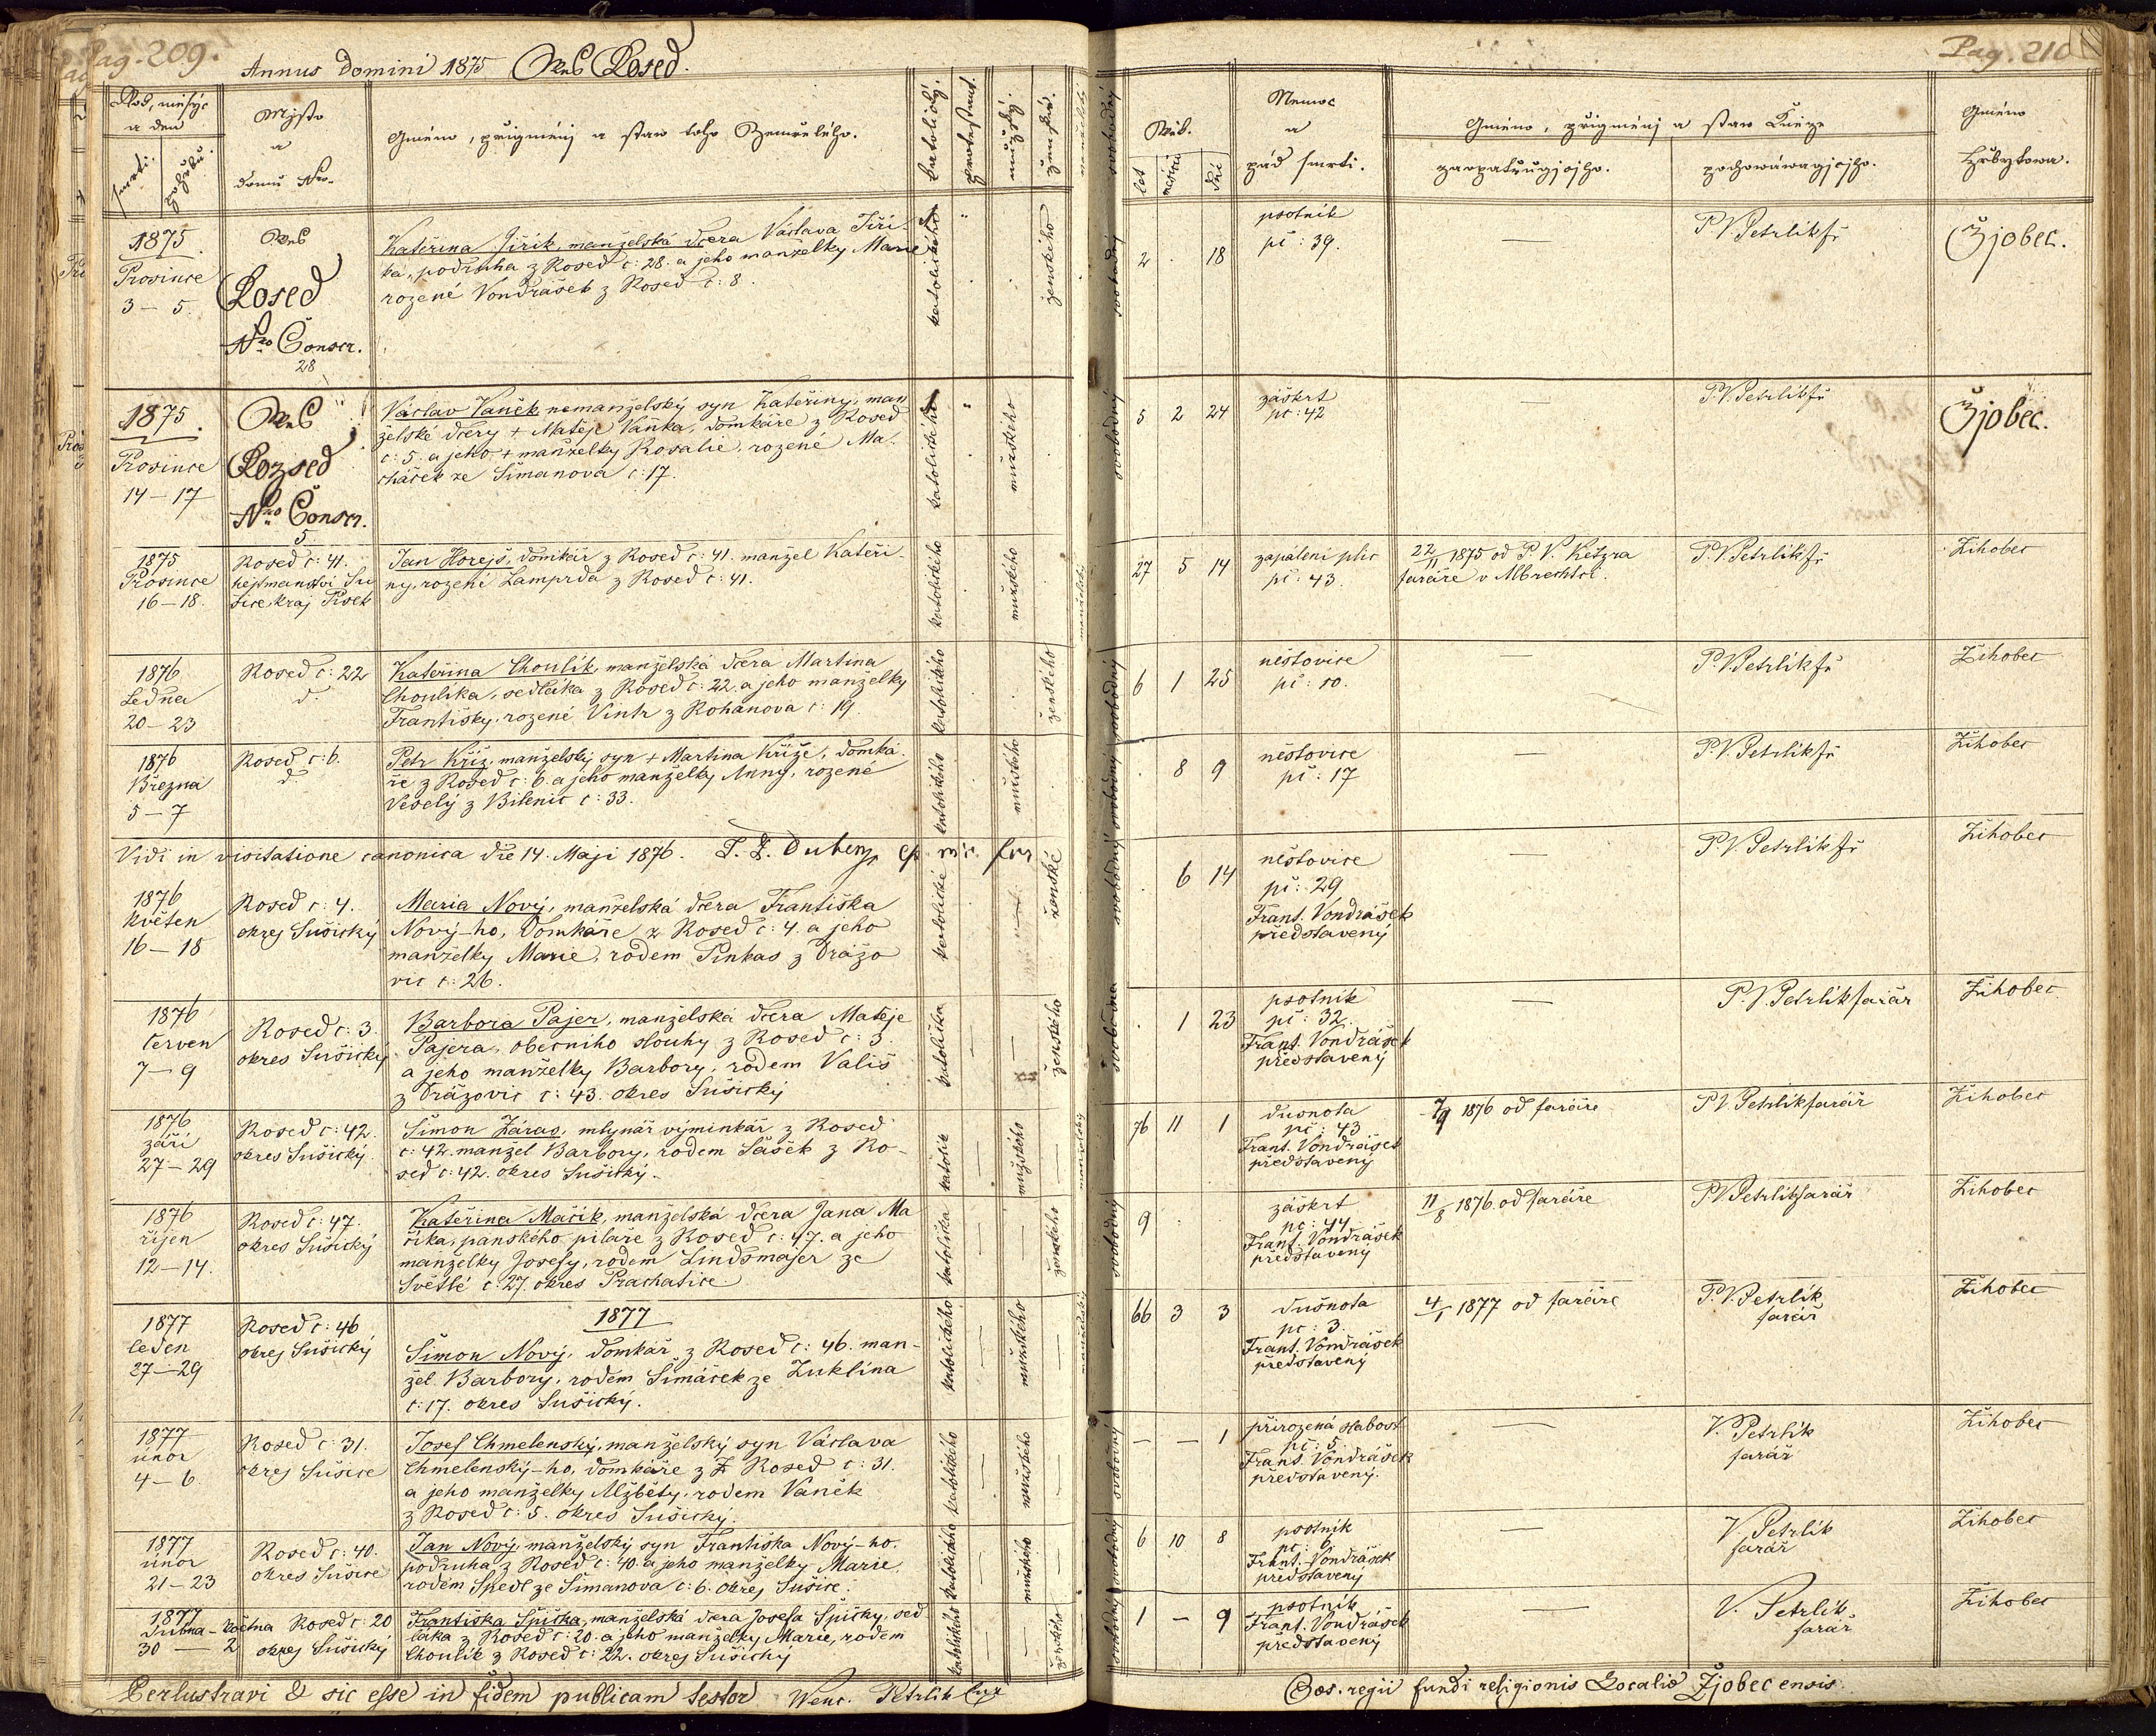 Pag. 209.
Annus Domini 1875 Ves Rosed.
Rok, měsýc
a den
smrti.
pohřbu.
Mjsto
a
domu Nro.
Gméno, přigménj a staw toho Zemřelého.
katolický.
protestant.
mužský.
ženské.
manželský
1875.
Prosince
3 – 5.
Ves
Rosed
Nro Conscr.
28
Kateřina Jiřík, manželská dcera Václava Jiří-
ka, podruha z Rosed č: 28. a jeho manželky Marie
rozené Vondrášek z Rosed č: 8.
katolického
ženského
1875.
Prosince
14 – 17
Ves
Rozsed
Nro Conscr.
5
Václav Vaněk nemanželský syn Kateřiny, man
želské dcery + Matěje Vaňka, domkáře z Rosed
č: 5. a jeho + manželky Rosalie, rozené Ma-
cháček ze Šimanova č: 17.
katolického
mužského
1875
Prosince
16 – 18.
Rosed č: 41.
hejtmanství Su
šice, kraj Písek
Jan Horejš, domkář z Rosed č: 41. manžel Kateři-
ny, rození Lamprda z Rosed č: 41.
katolického
mužského
manželský
1876
Ledna
20 – 23
Rosed č: 22
d.
Kateřina Choulík, manželská dcera Martina
Choulíka, sedláka z Rosed č: 22. a jeho manželky
Františky, rozené Vintr z Rohanova č: 19.
katolického
ženského
1876
Března
5 – 7
Rosed č: 6.
d.
Petr Kříž, manželský syn + Martina Kříže, domká
ře z Rosed č: 6. a jeho manželky Anny, rozené
Veselý z Bilenic č: 33.
katolického
mužského
Vidi in visitatione canonica die 14. Maji 1876.
1876
květen
16 – 18
Rosed č: 4.
okres Sušický
Maria Nový, manželská dcera Františka
Nový-ho, Domkáře z Rosed č: 4. a jeho
manželky Marie, rodem Pinkas z Drážo
vic č: 26.
katolické
ženské
1876
červen
7 – 9
Rosed č: 3.
okres Sušický
Barbora Pajer, manželská dcera Matěje
Pajera, obecního slouhy z Rosed č: 3.
a jeho manželky Barbory, rodem Vališ
z Drážovic č: 43. okres Sušický
katolička
ženského
1876
září
27 – 29
Rosed č: 42.
okres Sušický.
Šimon Záras, mlynář výminkář z Rosed
č: 42. manžel Barbory, rodem Sášek z Ro-
sed č: 42. okres Sušický.
katolík
mužského
manželský
1876
říjen
12 – 14.
Rosed č: 47.
okres Sušický
Kateřina Mačík, manželská dcera Jana Ma
číka, panského pilaře z Rosed č: 47. a jeho
manželky Josefy, rodem Lindsmajer ze
Světlé č: 27. okres Prachatice.
katolička
ženského
1877
leden
27 – 29
Rosed č: 46
okres Sušický
1877
Šimon Nový, domkář z Rosed č: 46. man-
žel Barbory, rodem Šimáček ze Zuklína
č: 17. okres Sušický.
katolického
mužského
manželský
1877
únor
4 – 6.
Rosed č: 31.
okres Sušice
Josef Chmelenský, manželský syn Václava
Chmelenský-ho, domkáře z Rosed č: 31.
a jeho manželky Alžběty, rodem Vaněk
z Rosed č: 5. okres Sušický.
katolického
mužského
1877
únor
21 – 23
Rosed č: 40.
okres Sušice
Jan Nový, manželský syn Františka Nový-ho.
podruha z Rosed č: 40. a jeho manželky Marie,
rodem Špedl ze Šimanova č: 6. okres Sušice.
katolického
mužského
1877
Dubna – Května
30 – 2
Rosed č: 20
okres Sušický
Františka Špička, manželská dcera Josefa Špičky, sed
láka z Rosed č: 20. a jeho manželky Marie, rodem
Choulík z Rosed č: 22. okres Sušický
katolického
ženského
Perlustravi & sic esse in fidem publicam testor Wenc. Petrlik
Pag. 210
svobodný
Wěk.
let
měsíců
dní
Nemoc
a
pád smrti.
Gméno, přigménj a staw Kněze
zaopatřugjcjho.
pochowáwagjcjho.
Gméno
Hřbytowa.
2 . 18
psotník
pč: 39.
—
P. V. Petrlik fr
Žjobec.
5 2 24
záškrt
pč: 42
—
P. V. Petrlik fr
Žjobec.
27 5 14
zapálení plic
pč: 43.
22/11 1875 od P. V. Ketzra
faráře v Albrechtci.
P. V. Petrlik fr
Žihobec
6 1 25
neštovice
pč: 10.
—
P. V. Petrlik fr
Žihobec
. 8 9
neštovice
pč: 17
—
P. V. Petrlik fr
Žihobec
. 6 14
neštovice
pč: 29
Frant. Vondrášek
představený
—
P. V. Petrlik fr
Žihobec
. 1 23
psotník
pč: 32.
Frant. Vondrášek
představený
—
P. V. Petrlík farář
Žihobec
76 11 1
dušnota
pč: 43
Frant. Vondrášek
představený
1876 od faráře
P. V. Petrlík farář
Žihobec
9 . .
záškrt
pč: 44
Frant. Vondrášek
představený
11/8 1876 od faráře
P. V. Petrlík farář
Žihobec
66 3 3
dušnota
pč: 3.
Frant. Vondrášek
představený
4/1 1877 od faráře
P. V. Petrlík
farář
Žihobec
— — 1
přirozená slabost
pč: 5.
Frant. Vondrášek
představený.
—
V. Petrlík
farář
Žihobec
6 10 8
psotník
pč: 6.
Frant. Vondrášek
představený
—
V. Petrlík
farář
Žihobec
1 – 9
psotník
Frant. Vondrášek
představený
—
V. Petrlík
farář
Žihobec
regii fundi religionis Localis Žjobecensis